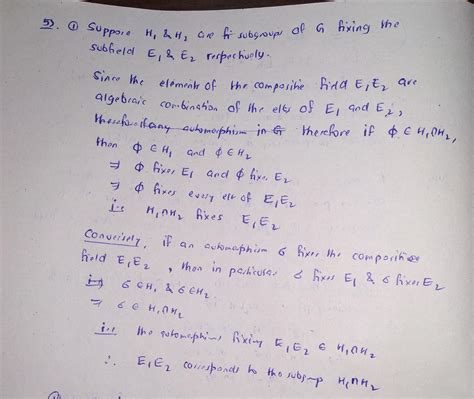 5). ① Suppose H₁ & H₂ are subgroups of G fixing the
subfield E₁ & E₂ respectively.
Since the elements of the composite field E₁E₂ are
algebraic combination of the elts of E₁ and E₂,
any automorphism in G therefore if φ ∈ H₁∩H₂,
then φ ∈ H₁ and φ ∈ H₂
⇒ φ fixes E₁ and φ fixes E₂
⇒ φ fixes every elt of E₁E₂
i.e H₁∩H₂ fixes E₁E₂
Conversely, if an automorphism σ fixes the composite
field E₁E₂, then in particular σ fixes E₁ & σ fixes E₂
i.e σ ∈ H₁ & σ ∈ H₂
⇒ σ ∈ H₁∩H₂
i.e the automorphism fixing E₁E₂ ∈ H₁∩H₂
∴ E₁E₂ corresponds to the subgrp H₁∩H₂